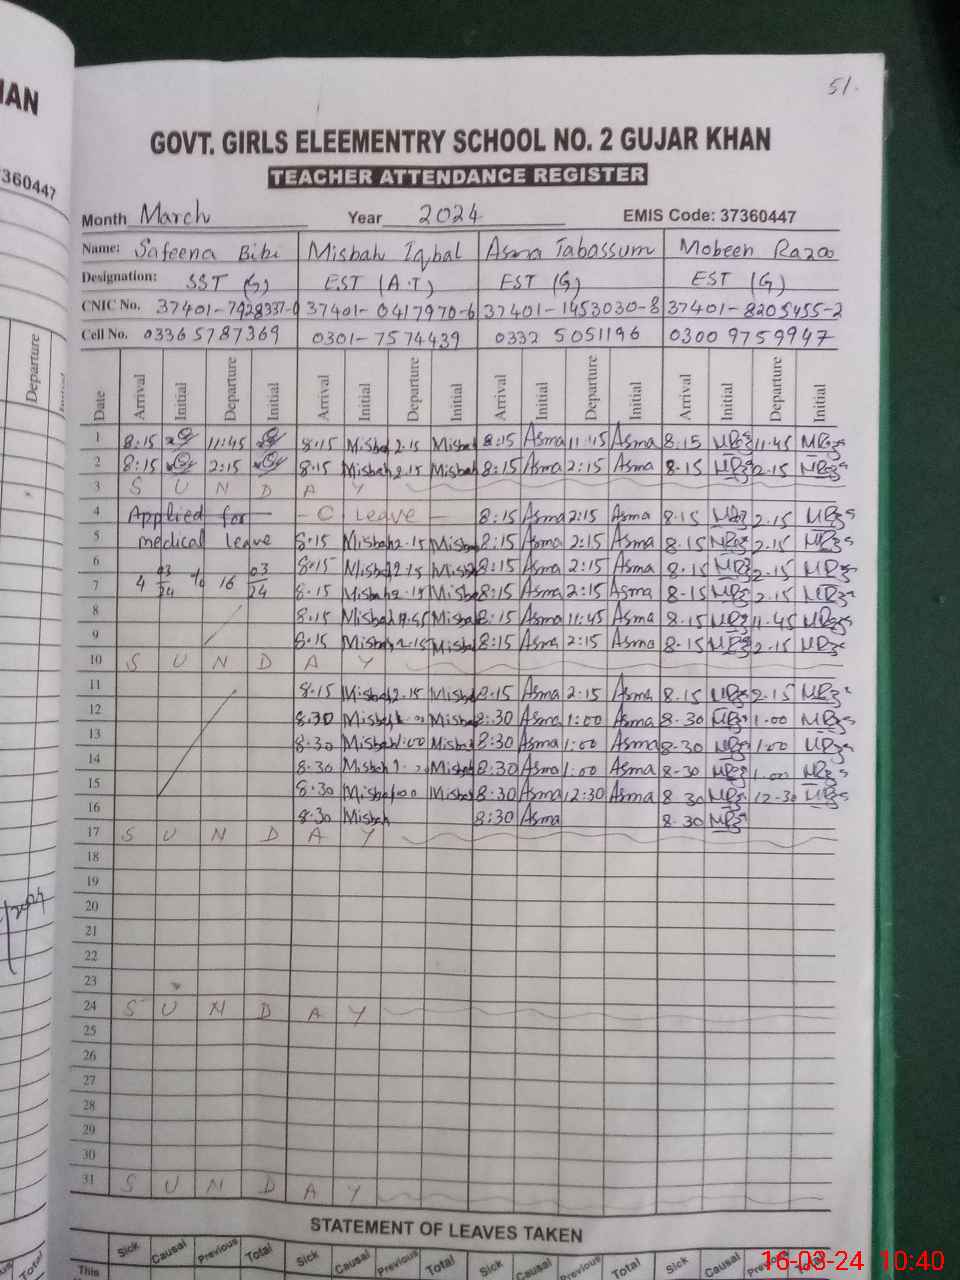 51.
HAN
GOVT. GIRLS ELEEMENTRY SCHOOL NO. 2 GUJAR KHAN
TEACHER ATTENDANCE REGISTER
37360447
Month March Year 2024 EMIS Code: 37360447
Name: Safeena Bibi Misbah Iqbal Asma Tabassum Mobeen Razaa
Designation: SST (G) EST (A.T) EST (G) EST (G)
CNIC No. 37401-7928337-0 37401-0417970-6 37401-1453030-8 37401-8205455-2
Cell No. 0336 5787369 0301-7574439 0332 5051196 0300 9759947
Departure
Date Arrival Initial Departure Initial Arrival Initial Departure Initial Arrival Initial Departure Initial Arrival Initial Departure Initial
1 8:15 11:45 8:15 Misbah 2.15 Misbah 8:15 Asma 11:45 Asma 8.15 11.45
2 8:15 2:15 8.15 Misbah 2.15 Misbah 8:15 Asma 2:15 Asma 8.15 2.15
3 S U N D A Y
4 Applied for - C Leave - 8:15 Asma 2:15 Asma 8.15 2.15
5 medical leave 8.15 Misbah 2.15 Misbah 8:15 Asma 2:15 Asma 8.15 2.15
6 8:15 Misbah 2.15 Misbah 8:15 Asma 2:15 Asma 8.15 2.15
7 4 03/24 to 16 03/24 8.15 Misbah 2.15 Misbah 8:15 Asma 2:15 Asma 8.15 2.15
8 8.15 Misbah Misbah 8:15 Asma 11:45 Asma 8.15 11.45
9 8.15 Misbah 2.15 Misbah 8:15 Asma 2:15 Asma 8.15 2.15
10 S U N D A Y
11 8.15 Misbah 2.15 Misbah 8:15 Asma 2:15 Asma 8.15 2.15
12 8.30 Misbah Misbah 8:30 Asma 1:00 Asma 8.30 1.00
13 8.30 Misbah 1:00 Misbah 8:30 Asma 1:00 Asma 8.30 1.00
14 8.30 Misbah Misbah 8:30 Asma 1:00 Asma 8.30 1.00
15 8.30 Misbah 1:00 Misbah 8:30 Asma 12:30 Asma 8.30 12.30
16 8.30 Misbah 8:30 Asma 8.30
17 S U N D A Y
18
19
20
21
22
23
24 S U N D A Y
25
26
27
28
29
30
31 S U N D A Y
STATEMENT OF LEAVES TAKEN
Sick Causal Previous Total Sick Causal Previous Total Sick Causal Previous Total Sick Causal Previous Total
This
Total
16-03-24 10:40